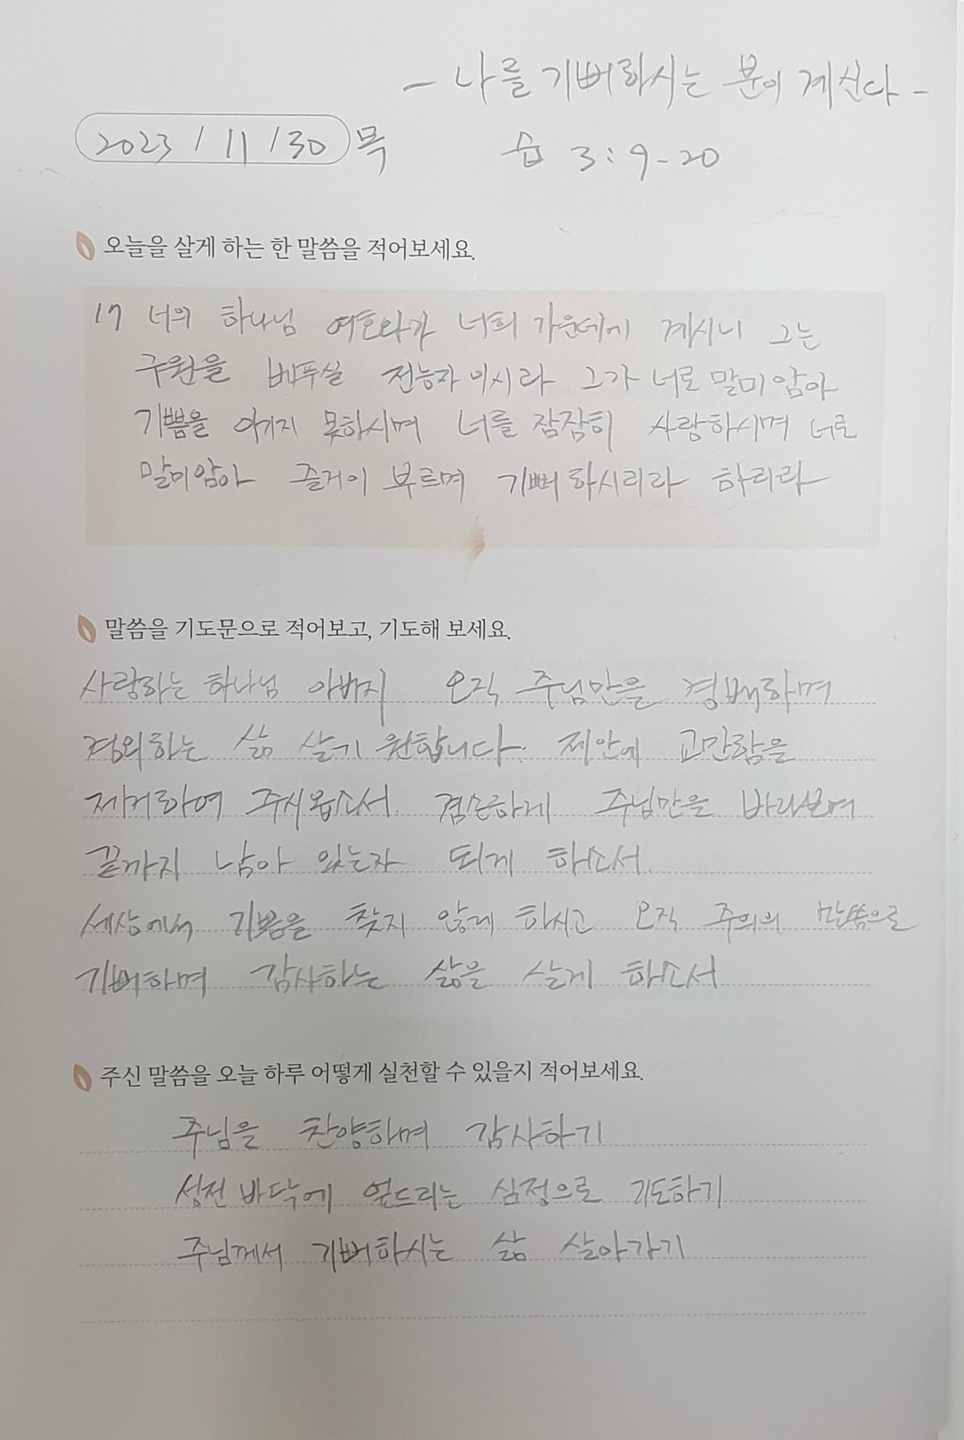 - 나를 기뻐하시는 분이 계신다 -
2023 / 11 / 30 목 습 3 : 9 - 20
오늘을 살게 하는 한 말씀을 적어보세요.
17 너의 하나님 여호와가 너희 가운데에 계시니 그는
구원을 베푸실 전능자이시라 그가 너로 말미암아
기쁨을 이기지 못하시며 너를 잠잠히 사랑하시며 너로
말미암아 즐거이 부르며 기뻐하시리라 하리라
말씀을 기도문으로 적어보고, 기도해 보세요.
사랑하는 하나님 아버지 오직 주님만을 경배하며
경외하는 삶 살기 원합니다. 제안에 교만함을
제거하여 주시옵소서. 겸손하게 주님만을 바라보며
끝까지 남아 있는자 되게 하소서.
세상에서 기쁨을 찾지 않게 하시고 오직 주의의 말씀으로
기뻐하며 감사하는 삶을 살게 하소서
주신 말씀을 오늘 하루 어떻게 실천할 수 있을지 적어보세요.
주님을 찬양하며 감사하기
성전 바닥에 엎드리는 심정으로 기도하기
주님께서 기뻐하시는 삶 살아가기